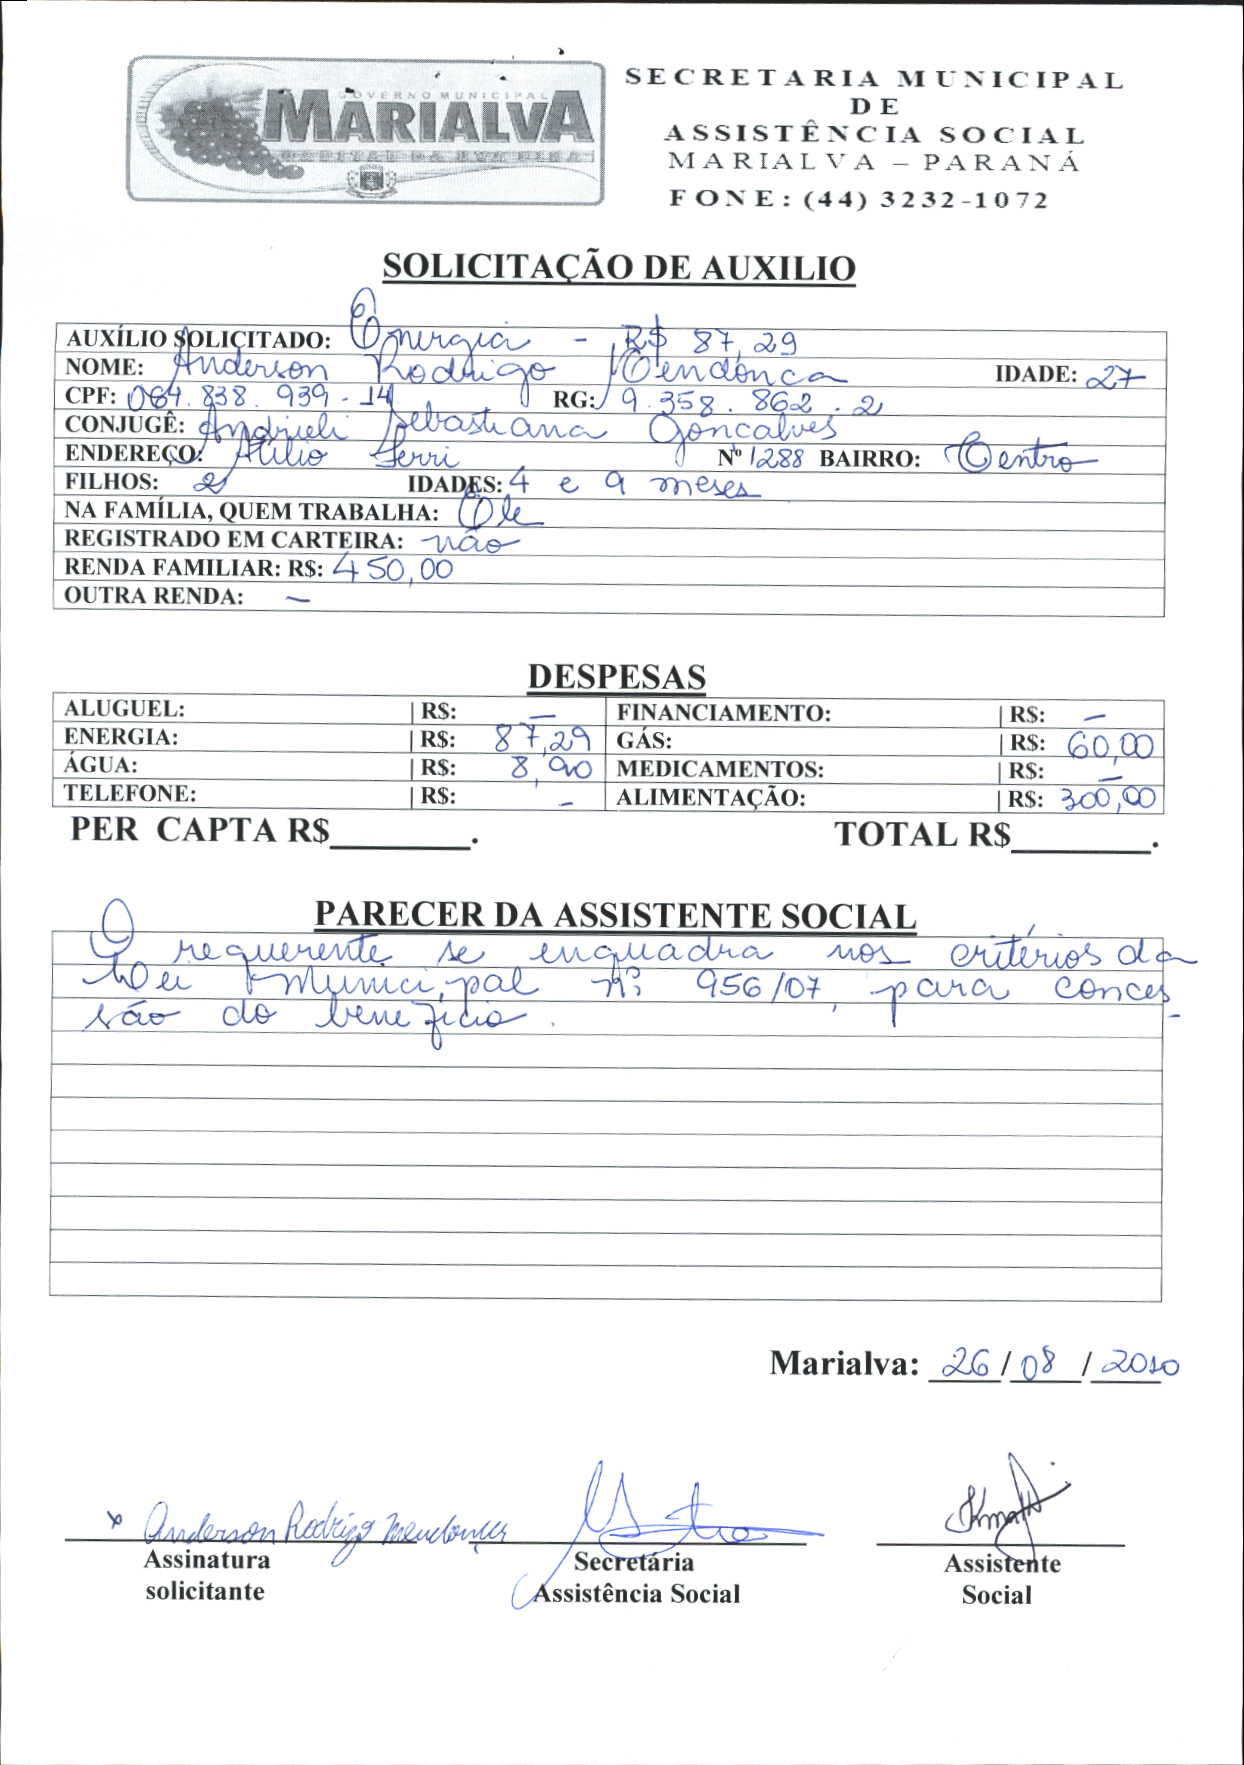 GOVERNO MUNICIPAL
MARIALVA
CAPITAL DA UVA FINA
SECRETARIA MUNICIPAL
DE
ASSISTÊNCIA SOCIAL
MARIALVA – PARANÁ
FONE: (44) 3232-1072
SOLICITAÇÃO DE AUXILIO
AUXÍLIO SOLICITADO: Energia - R$ 87,29
NOME: Anderson Rodrigo Mendonca IDADE: 27
CPF: 064.838.939-14 RG: 9.358.862.2
CONJUGÊ: Andrieli Sebastiana Goncalves
ENDEREÇO: Atílio Ferri Nº 1288 BAIRRO: Centro
FILHOS: 2 IDADES: 4 e 9 meses
NA FAMÍLIA, QUEM TRABALHA: Ele
REGISTRADO EM CARTEIRA: não
RENDA FAMILIAR: R$: 450,00
OUTRA RENDA: –
DESPESAS
ALUGUEL: | R$: – FINANCIAMENTO: | R$: –
ENERGIA: | R$: 87,29 GÁS: | R$: 60,00
ÁGUA: | R$: 8,90 MEDICAMENTOS: | R$: –
TELEFONE: | R$: – ALIMENTAÇÃO: | R$: 300,00
PER CAPTA R$________. TOTAL R$________.
PARECER DA ASSISTENTE SOCIAL
O requerente se enquadra nos critérios da
Lei Municipal nº 956/07, para conces-
são do benefício.
Marialva: 26/08/2010
x Anderson Rodrigo Mendonça
Assinatura Secretária Assistente
solicitante Assistência Social Social